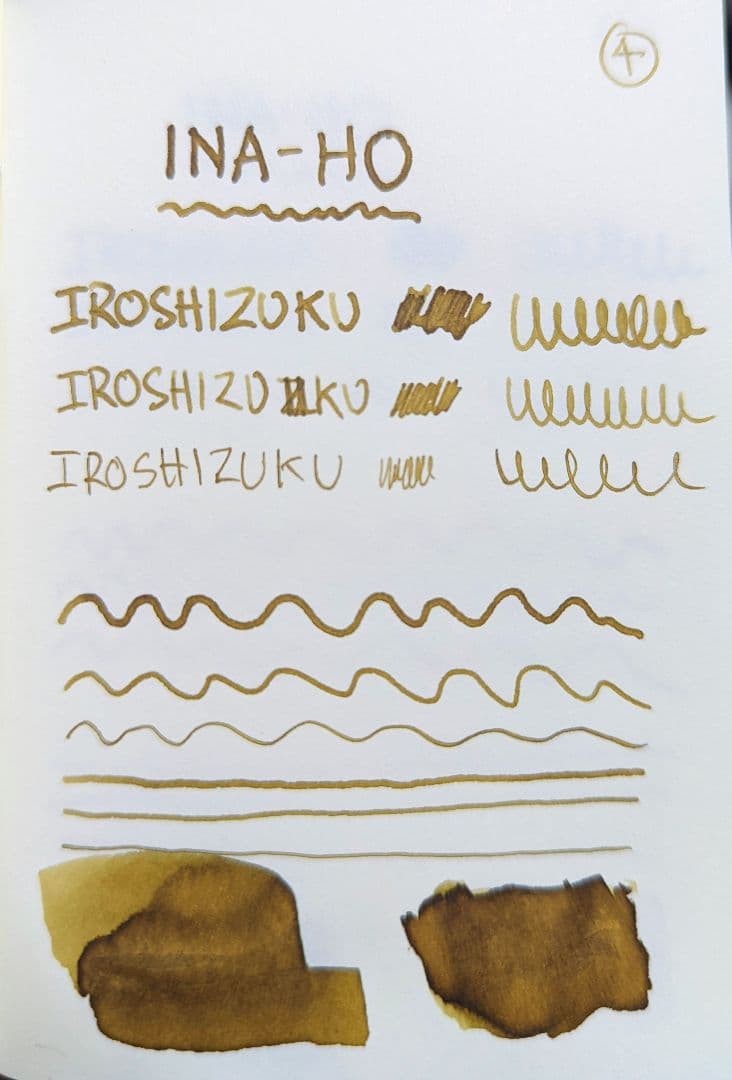 4
INA-HO
IROSHIZUKU
IROSHIZUKU
IROSHIZUKU